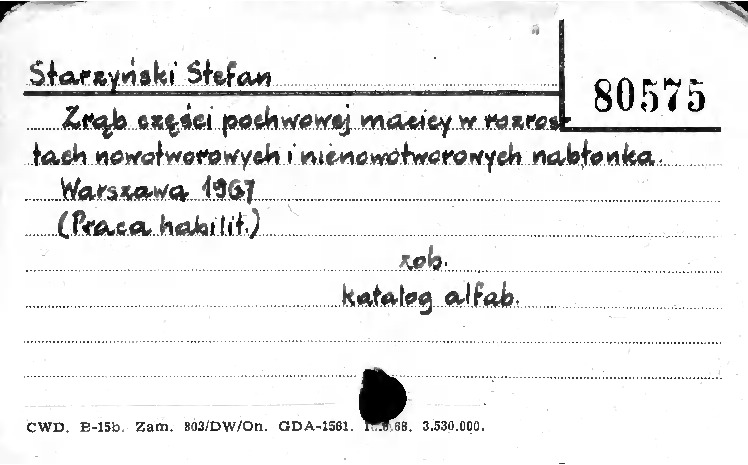 Starzyński Stefan
80575
Zrąb części pochwowej macicy w rozros-
tach nowotworowych i nienowotworowych nabłonka.
Warszawa 1967
(Praca habilit.)
zob.
katalog alfab.
CWD. B-15b. Zam. 803/DW/On. GDA-1561. 68. 3.530.000.